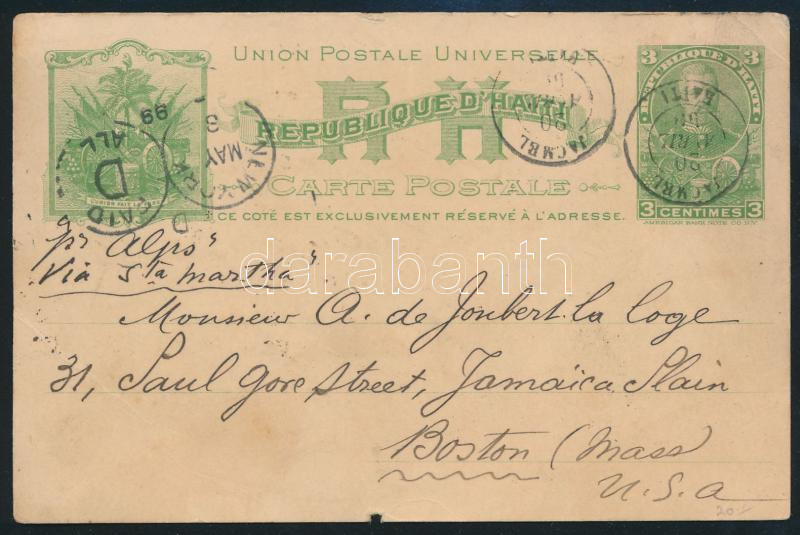 UNION POSTALE UNIVERSELLE
RH
REPUBLIQUE D'HAITI
CARTE POSTALE
CE COTÉ EST EXCLUSIVEMENT RÉSERVÉ À L'ADRESSE.
L'UNION FAIT LA FORCE
3 3
REPUBLIQUE D'HAITI
3 CENTIMES 3
AMERICAN BANK NOTE CO. N.Y.
JACMEL
20
HAITI
JACMEL
20
HAITI
NEW YORK
MAY
8
D
PAID
D
ALL
99
pr "Alps"
Via Sta Martha"
Monsieur A. de Joubert la Loge
31, Paul Gore Street, Jamaica Plain
Boston (Mass)
U.S.a
darabanth